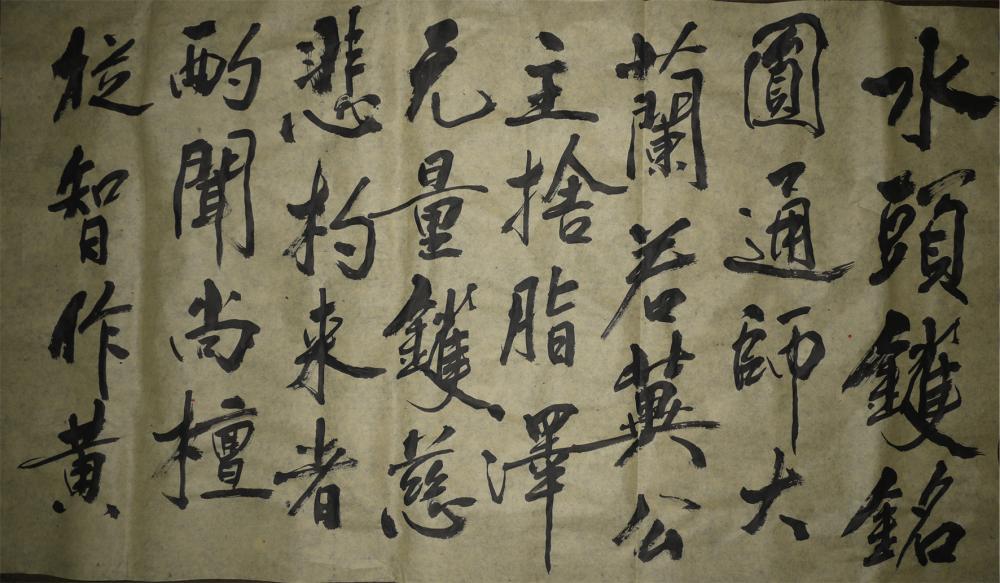 水頭鑊銘
圓通師大
蘭若冀公
主捨脂澤
无量鑊慈
悲杓来者
酌聞尚檀
從智作黄